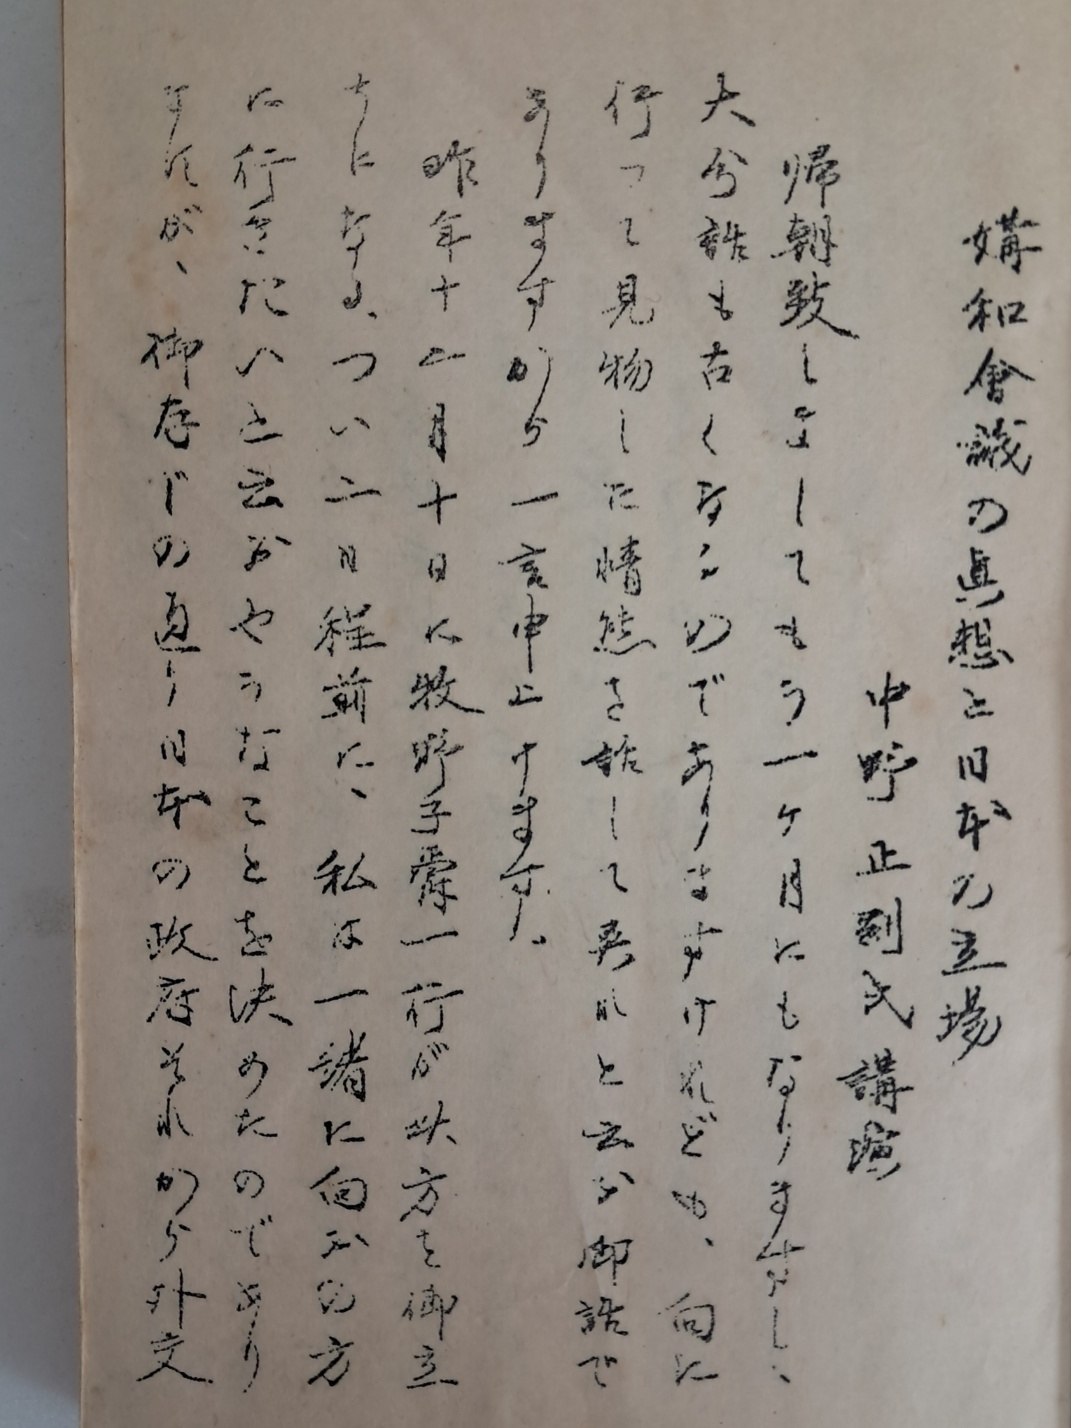 媾和會議の眞想と日本の立場
中野正剛氏講演
帰朝致しましてもう一ヶ月にもなりますし、
大分話も古くなるのでありますけれども、向に
行って見物した情態を話して呉れと云ふ御話で
ありますから一言申上げます。
昨年十二月十日に牧野子爵一行が此方を御立
ちになる、つい二日程前に、私は一緒に向ふの方
に行きたいと云ふやうなことを決めたのであり
ますが、御存じの通り日本の政府それから外交